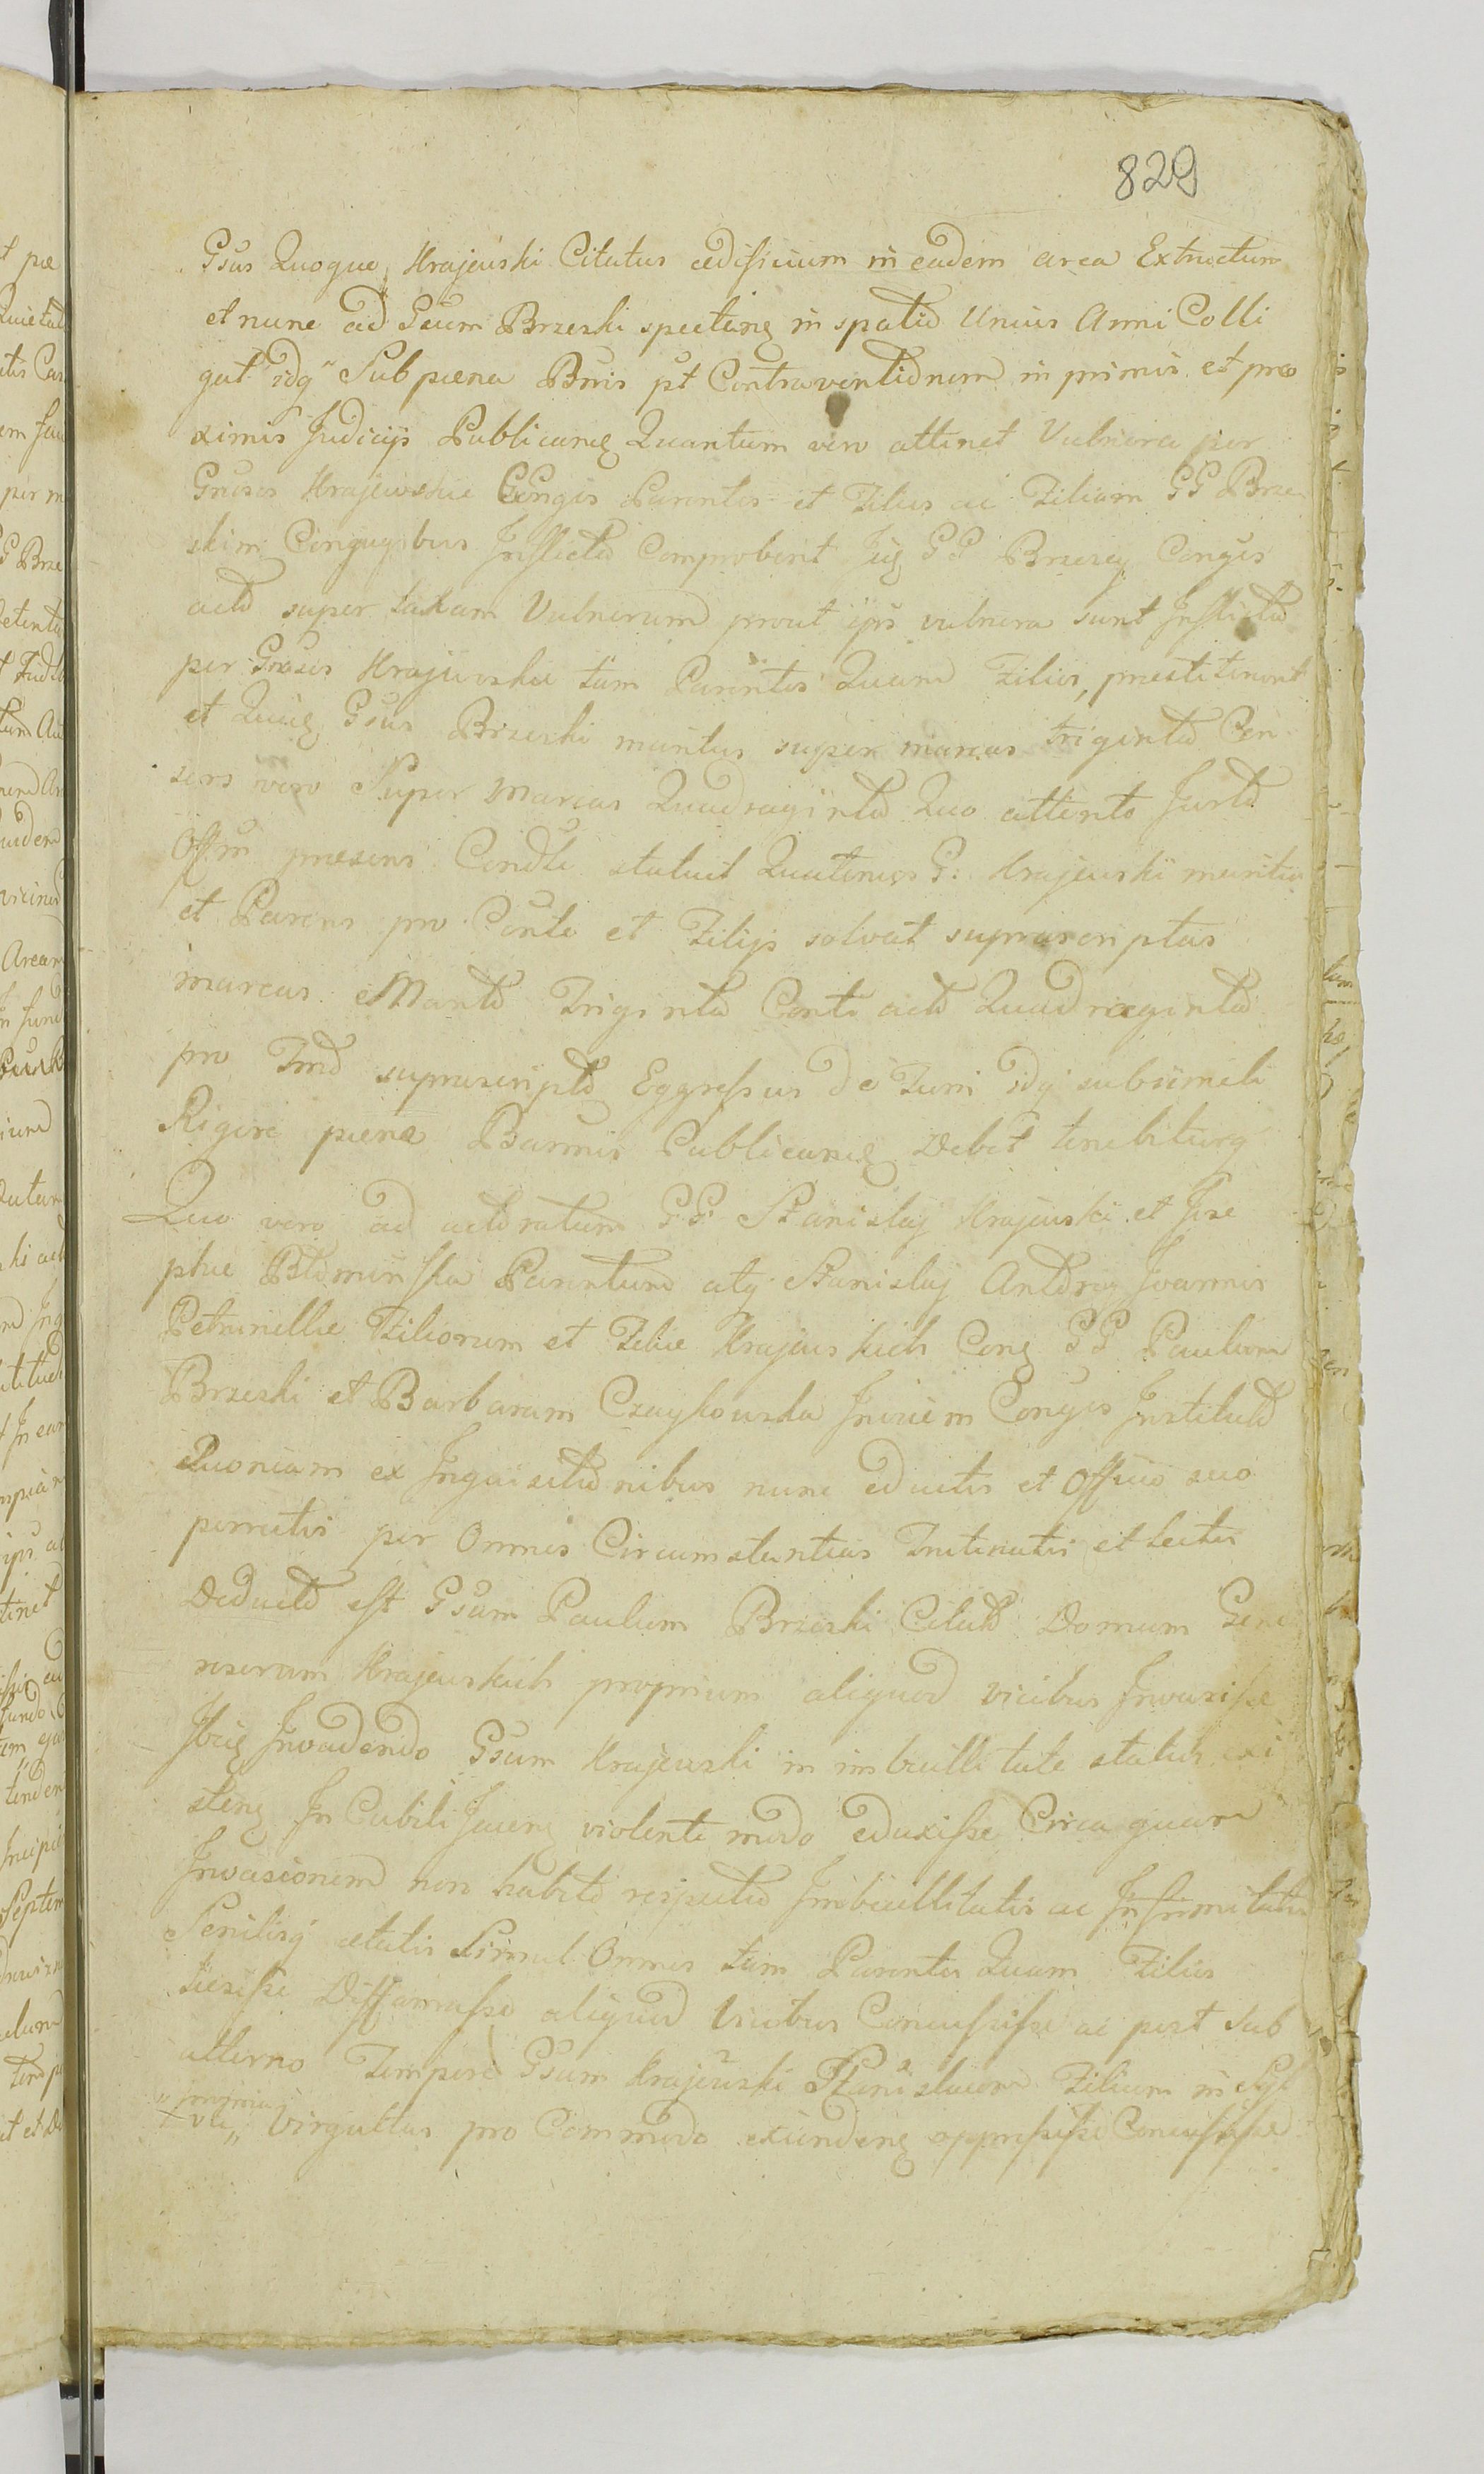 829
Gsus Quoque Krajewski Citatus ædificium in eadem area Extructum
et nunc ad Gsum Brzeski spectans in spatio Unius Anni Colli
gat idq Sub pæna Bnis pt Contraventionem in primis et pro
ximis Judicijs Publicans Quantum vero attinet Vulnera per
Gnosos Krajewskie Conges Parentes et Filios ac Filiam GG Brze
skim Conjugibus Inflicta Comproberit GG Brzescy Conges
acto super taxam Vulnerum prout ipis vulnera sunt Inflicta
per Gnosos Krajewskie tam Parentes Quam Filios, prestiterint
et Gsus Brzeski maritus super marcas triginta Con
sors vero Super Marcas Quadraginta Quo attento Jurto
Offm præsens Condle statuit Quatenus G. Krajewski maritus
et Parens pro Conte et Filijs solvat suprascriptas
marcas Marito Triginta Conti acto Quadraginta
pro Tmo suprascripto Eggressus de Turri idq subsimili
Rigore pæna Bannis Publicans Debet tenebiturq
Quo vero ad actoratum GG Stanislaj Krajewski et Jose
phæ Parentum atq Stanislaj Andreæ Joannis
Petronellæ Filiorum et Filiæ Krajewskich Cong GG Paulum
Brzeski et Barbaram Czaykowska Invicem Conges Instituto
Quoniam ex Inquisitionibus nunc eductis et Officio suo
porrectis per Omnes Circumstantias Trutinatis et Lectis
Deducto est Gsum Paulum Brzeski Citato Domum Gene
rosorum Krajewskich propriam aliquod vicibus Invasisse
Ibiq Invadendo Gsum Krajewski in imbecillitate status exi
stens In Cubili Jacens violento modo eduxisse Circa quam
Invasionem non habito respectu Imbecillitatis ac Infirmitatis
Senilisq ætatis Simul Omnes tam Parentes Quam Filios
læsisse Diffamasse aliquod vicibus Concussisse ac post sub
alterno Tempore Gsum Krajewski Stanislaum Filium in Syl
va, propria Virgultas pro Commodo exindens oppressisse Concussisse